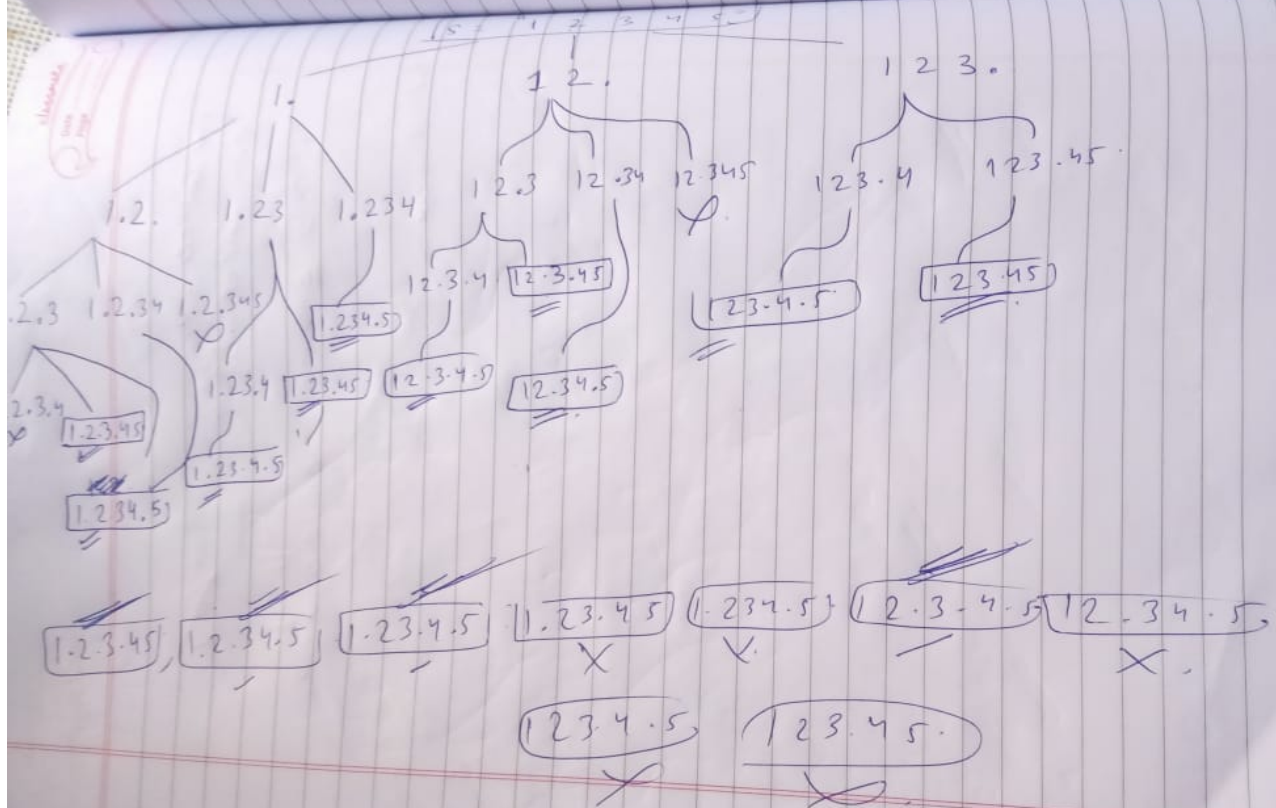 classmate
Date
Page
1 2 3 4 5
1. 1 2. 1 2 3.
1.2. 1.23 1.234 12.3 12.34 12.345 123.4 123.45
.2.3 1.2.34 1.2.345 12.3.4 12.3.45 123.4.5 123.45
1.234.5
2.3.4 1.2.3.45 1.23.4 1.23.45 12.3.4.5 12.34.5
1.23.4.5
1.2.34.5
1.2.3.45, 1.2.34.5, 1.23.4.5 1.23.45 1.234.5 12.3.4.5 12.34.5,
123.4.5, 123.45.